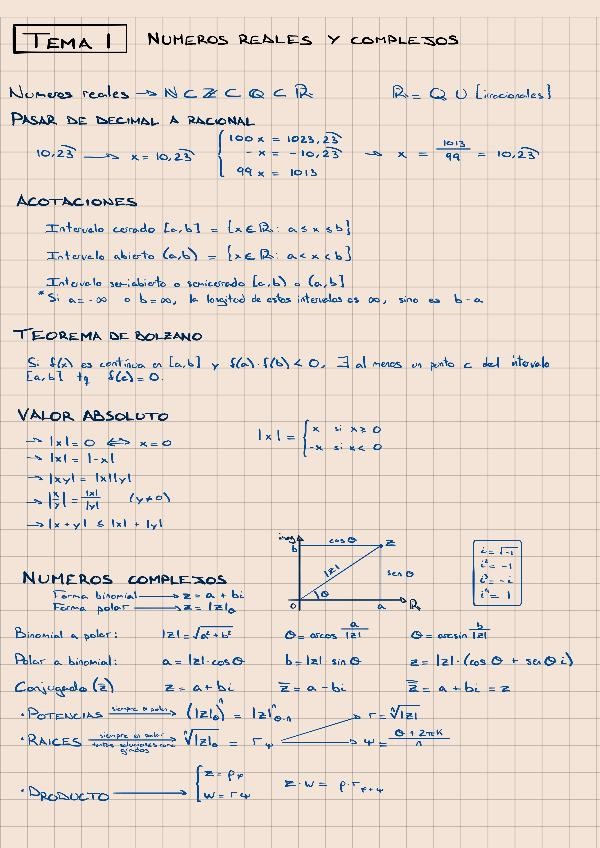 TEMA 1 NUMEROS REALES Y COMPLEJOS
Numeros reales → N ⊂ Z ⊂ Q ⊂ R R = Q ∪ {irracionales}
PASAR DE DECIMAL A RACIONAL
10,23 → x = 10,23 { 100x = 1023,23 → x = 1013/99 = 10,23
-x = -10,23
99x = 1013
ACOTACIONES
Intervalo cerrado [a,b] = {x ∈ R : a ≤ x ≤ b}
Intervalo abierto (a,b) = {x ∈ R : a < x < b}
Intervalo semiabierto o semicerrado [a,b) o (a,b]
*Si a = -∞ o b = ∞, la longitud de estos intervalos es ∞, sino es b-a
TEOREMA DE BOLZANO
Si f(x) es continua en [a,b] y f(a)·f(b) < 0, ∃ al menos un punto c del intervalo
[a,b] tq f(c) = 0.
VALOR ABSOLUTO
→ |x| = 0 ⟺ x = 0 |x| = { x si x ≥ 0
-x si x < 0
→ |x| = |-x|
→ |xy| = |x||y|
→ |x/y| = |x|/|y| (y ≠ 0)
→ |x+y| ≤ |x| + |y|
imag b cos θ z
|z| sen θ
θ
0 a R
i = √-1
i² = -1
i³ = -i
i⁴ = 1
NUMEROS COMPLEJOS
Forma binomial → z = a + bi
Forma polar → z = |z|θ
Binomial a polar: |z| = √a²+b² θ = arcos a/|z| θ = arcsin b/|z|
Polar a binomial: a = |z|·cos θ b = |z|·sin θ z = |z|·(cos θ + sen θ i)
Conjugado (z̄) z = a + bi z̄ = a - bi z̿ = a + bi = z
·POTENCIAS siempre en polar → (|z|θ)ⁿ = |z|ⁿ θ·n r = ⁿ√|z|
·RAICES siempre en polar tantas soluciones como grados → ⁿ√|z|θ = rψ ψ = θ + 2πK/n
·PRODUCTO → { z = ρφ z·w = ρ·r φ+ψ
w = rψ